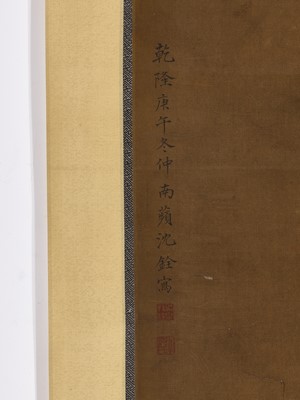 乾隆庚午冬仲南蘋沈銓寫